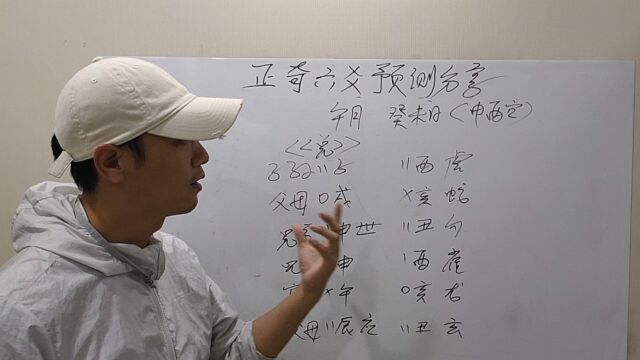 正奇六爻预测分享
午月 癸未日(申酉空)
<<兑>>
〃酉 虎
父母 O戌 X亥 蛇
申世 〃丑 勾
申 酉 雀
X午 O亥 龙
父母〃辰应 〃丑 玄